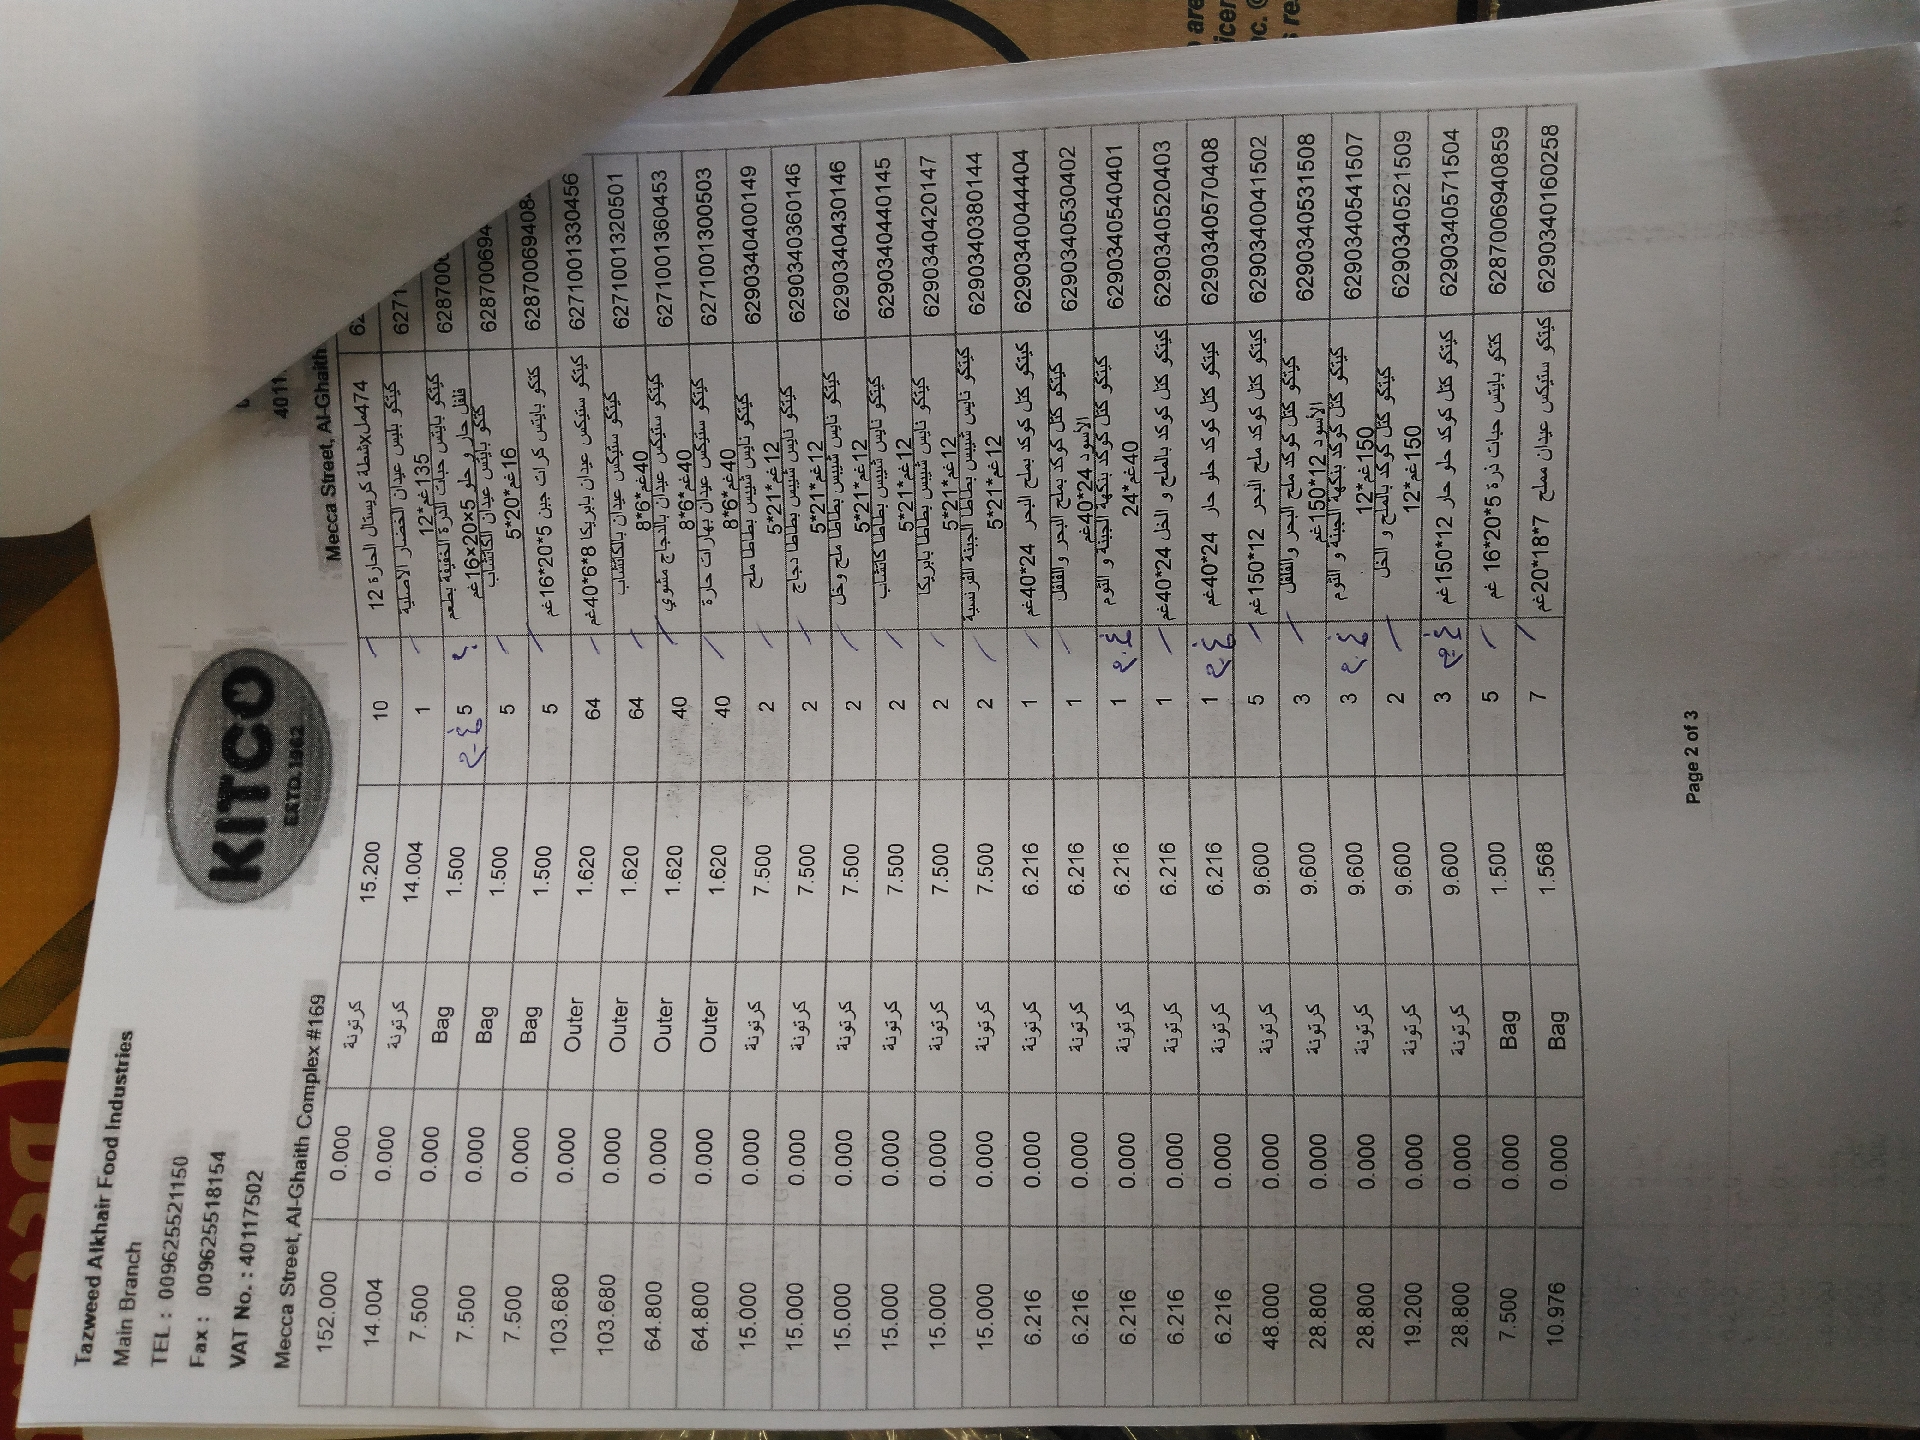 Tazweed Alkhair Food Industries
Main Branch
TEL : 0096255521150
Fax : 0096255518154
VAT No. : 40117502
Mecca Street, Al-Ghaith Complex #169
KITCO
ESTD. 1962
4011
Mecca Street, Al-Ghaith
152.000 0.000 كرتونة 15.200 10 شطة كريستال الحارة 12x474مل 62
14.004 0.000 كرتونة 14.004 1 كيتكو بليس عيدان الخضار الاصلية 135غم*12 6271
7.500 0.000 Bag 1.500 5 كيتكو بايتس حبات الذرة الخفيفة بطعم فلفل حار و حلو 5×20×16غم 628700
7.500 0.000 Bag 1.500 5 كتكو بايتس عيدان الكاتشاب 16غم*20*5 628700694
7.500 0.000 Bag 1.500 5 كتكو بايتس كرات جبن 5*20*16غم 62870069408
103.680 0.000 Outer 1.620 64 كيتكو ستيكس عيدان بابريكا 8*6*40غم 6271001330456
103.680 0.000 Outer 1.620 64 كيتكو ستيكس عيدان بالكاتشاب 40غم*6*8 6271001320501
64.800 0.000 Outer 1.620 40 كيتكو ستيكس عيدان بالدجاج مشوي 40غم*6*8 6271001360453
64.800 0.000 Outer 1.620 40 كيتكو ستيكس عيدان بهارات حارة 40غم*6*8 6271001300503
15.000 0.000 كرتونة 7.500 2 كيتكو نايس شيبس بطاطا ملح 12غم*21*5 6290340400149
15.000 0.000 كرتونة 7.500 2 كيتكو نايس شيبس بطاطا دجاج 12غم*21*5 6290340360146
15.000 0.000 كرتونة 7.500 2 كيتكو نايس شيبس بطاطا ملح وخل 12غم*21*5 6290340430146
15.000 0.000 كرتونة 7.500 2 كيتكو نايس شيبس بطاطا كاتشاب 12غم*21*5 6290340440145
15.000 0.000 كرتونة 7.500 2 كيتكو نايس شيبس بطاطا بابريكا 12غم*21*5 6290340420147
15.000 0.000 كرتونة 7.500 2 كيتكو نايس شيبس بطاطا الجبنة الفرنسية 12غم*21*5 6290340380144
6.216 0.000 كرتونة 6.216 1 كيتكو كتل كوكد بملح البحر 24*40غم 6290340044404
6.216 0.000 كرتونة 6.216 1 كيتكو كتل كوكد بملح البحر والفلفل الأسود 24*40غم 6290340530402
6.216 0.000 كرتونة 6.216 1 كيتكو كتل كوكد بنكهة الجبنة و الثوم 40غم*24 6290340540401
6.216 0.000 كرتونة 6.216 1 كيتكو كتل كوكد بالملح و الخل 24*40غم 6290340520403
6.216 0.000 كرتونة 6.216 1 كيتكو كتل كوكد حلو حار 24*40غم 6290340570408
48.000 0.000 كرتونة 9.600 5 كيتكو كتل كوكد ملح البحر 12*150غم 6290340041502
28.800 0.000 كرتونة 9.600 3 كيتكو كتل كوكد ملح البحر والفلفل الأسود 12*150غم 6290340531508
28.800 0.000 كرتونة 9.600 3 كيتكو كتل كوكد بنكهة الجبنة و الثوم 150غم*12 6290340541507
19.200 0.000 كرتونة 9.600 2 كيتكو كتل كوكد بالملح و الخل 150غم*12 6290340521509
28.800 0.000 كرتونة 9.600 3 كيتكو كتل كوكد حلو حار 12*150غم 6290340571504
7.500 0.000 Bag 1.500 5 كتكو بايتس حبات ذرة 5*20*16 غم 6287006940859
10.976 0.000 Bag 1.568 7 كيتكو ستيكس عيدان مملح 7*18*20غم 6290340160258
Page 2 of 3